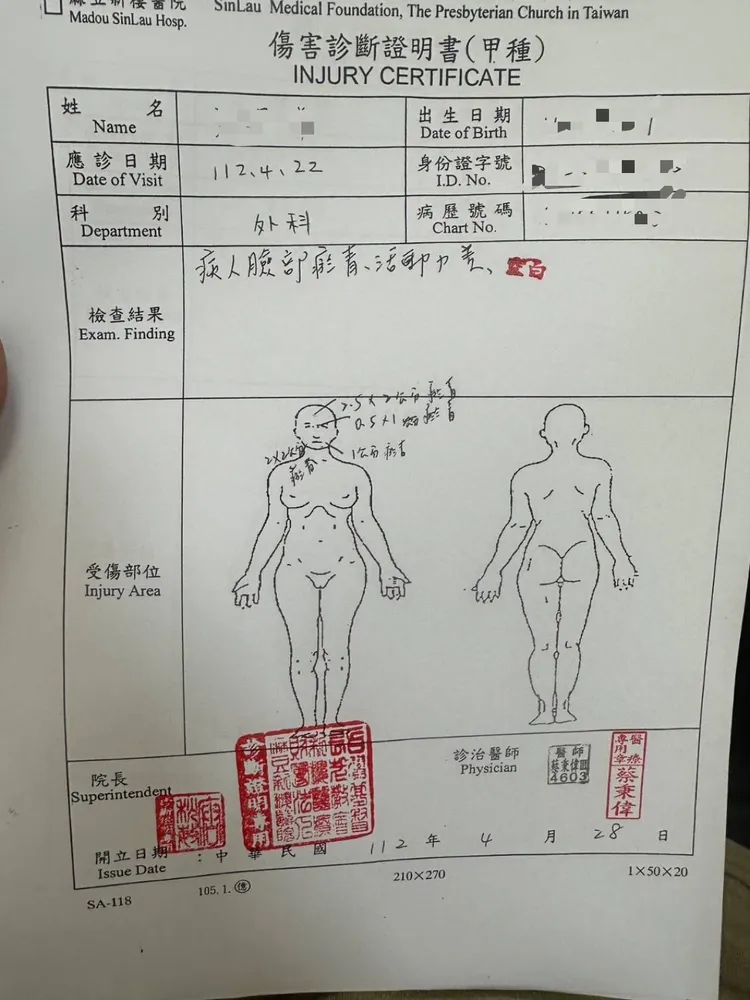 麻豆新樓醫院 SinLau Medical Foundation, The Presbyterian Church in Taiwan
Madou SinLau Hosp.
傷害診斷證明書(甲種)
INJURY CERTIFICATE
姓 名
Name
出生日期
Date of Birth
應診日期
Date of Visit
112、4、22
身份證字號
I.D. No.
科 別
Department
外科
病歷號碼
Chart No.
檢查結果
Exam. Finding
病人臉部瘀青、活動力差、空白
受傷部位
Injury Area
2.5×2公分瘀青
0.5×1公分瘀青
2×2公分瘀青
1公分瘀青
院長
Superintendent
診斷證明專用
診治醫師
Physician
醫師
蔡秉偉
4603
醫療專用章
蔡秉偉
開立日期
Issue Date
：中華民國 112 年 4 月 28 日
SA-118
105.1.億
210×270
1×50×20